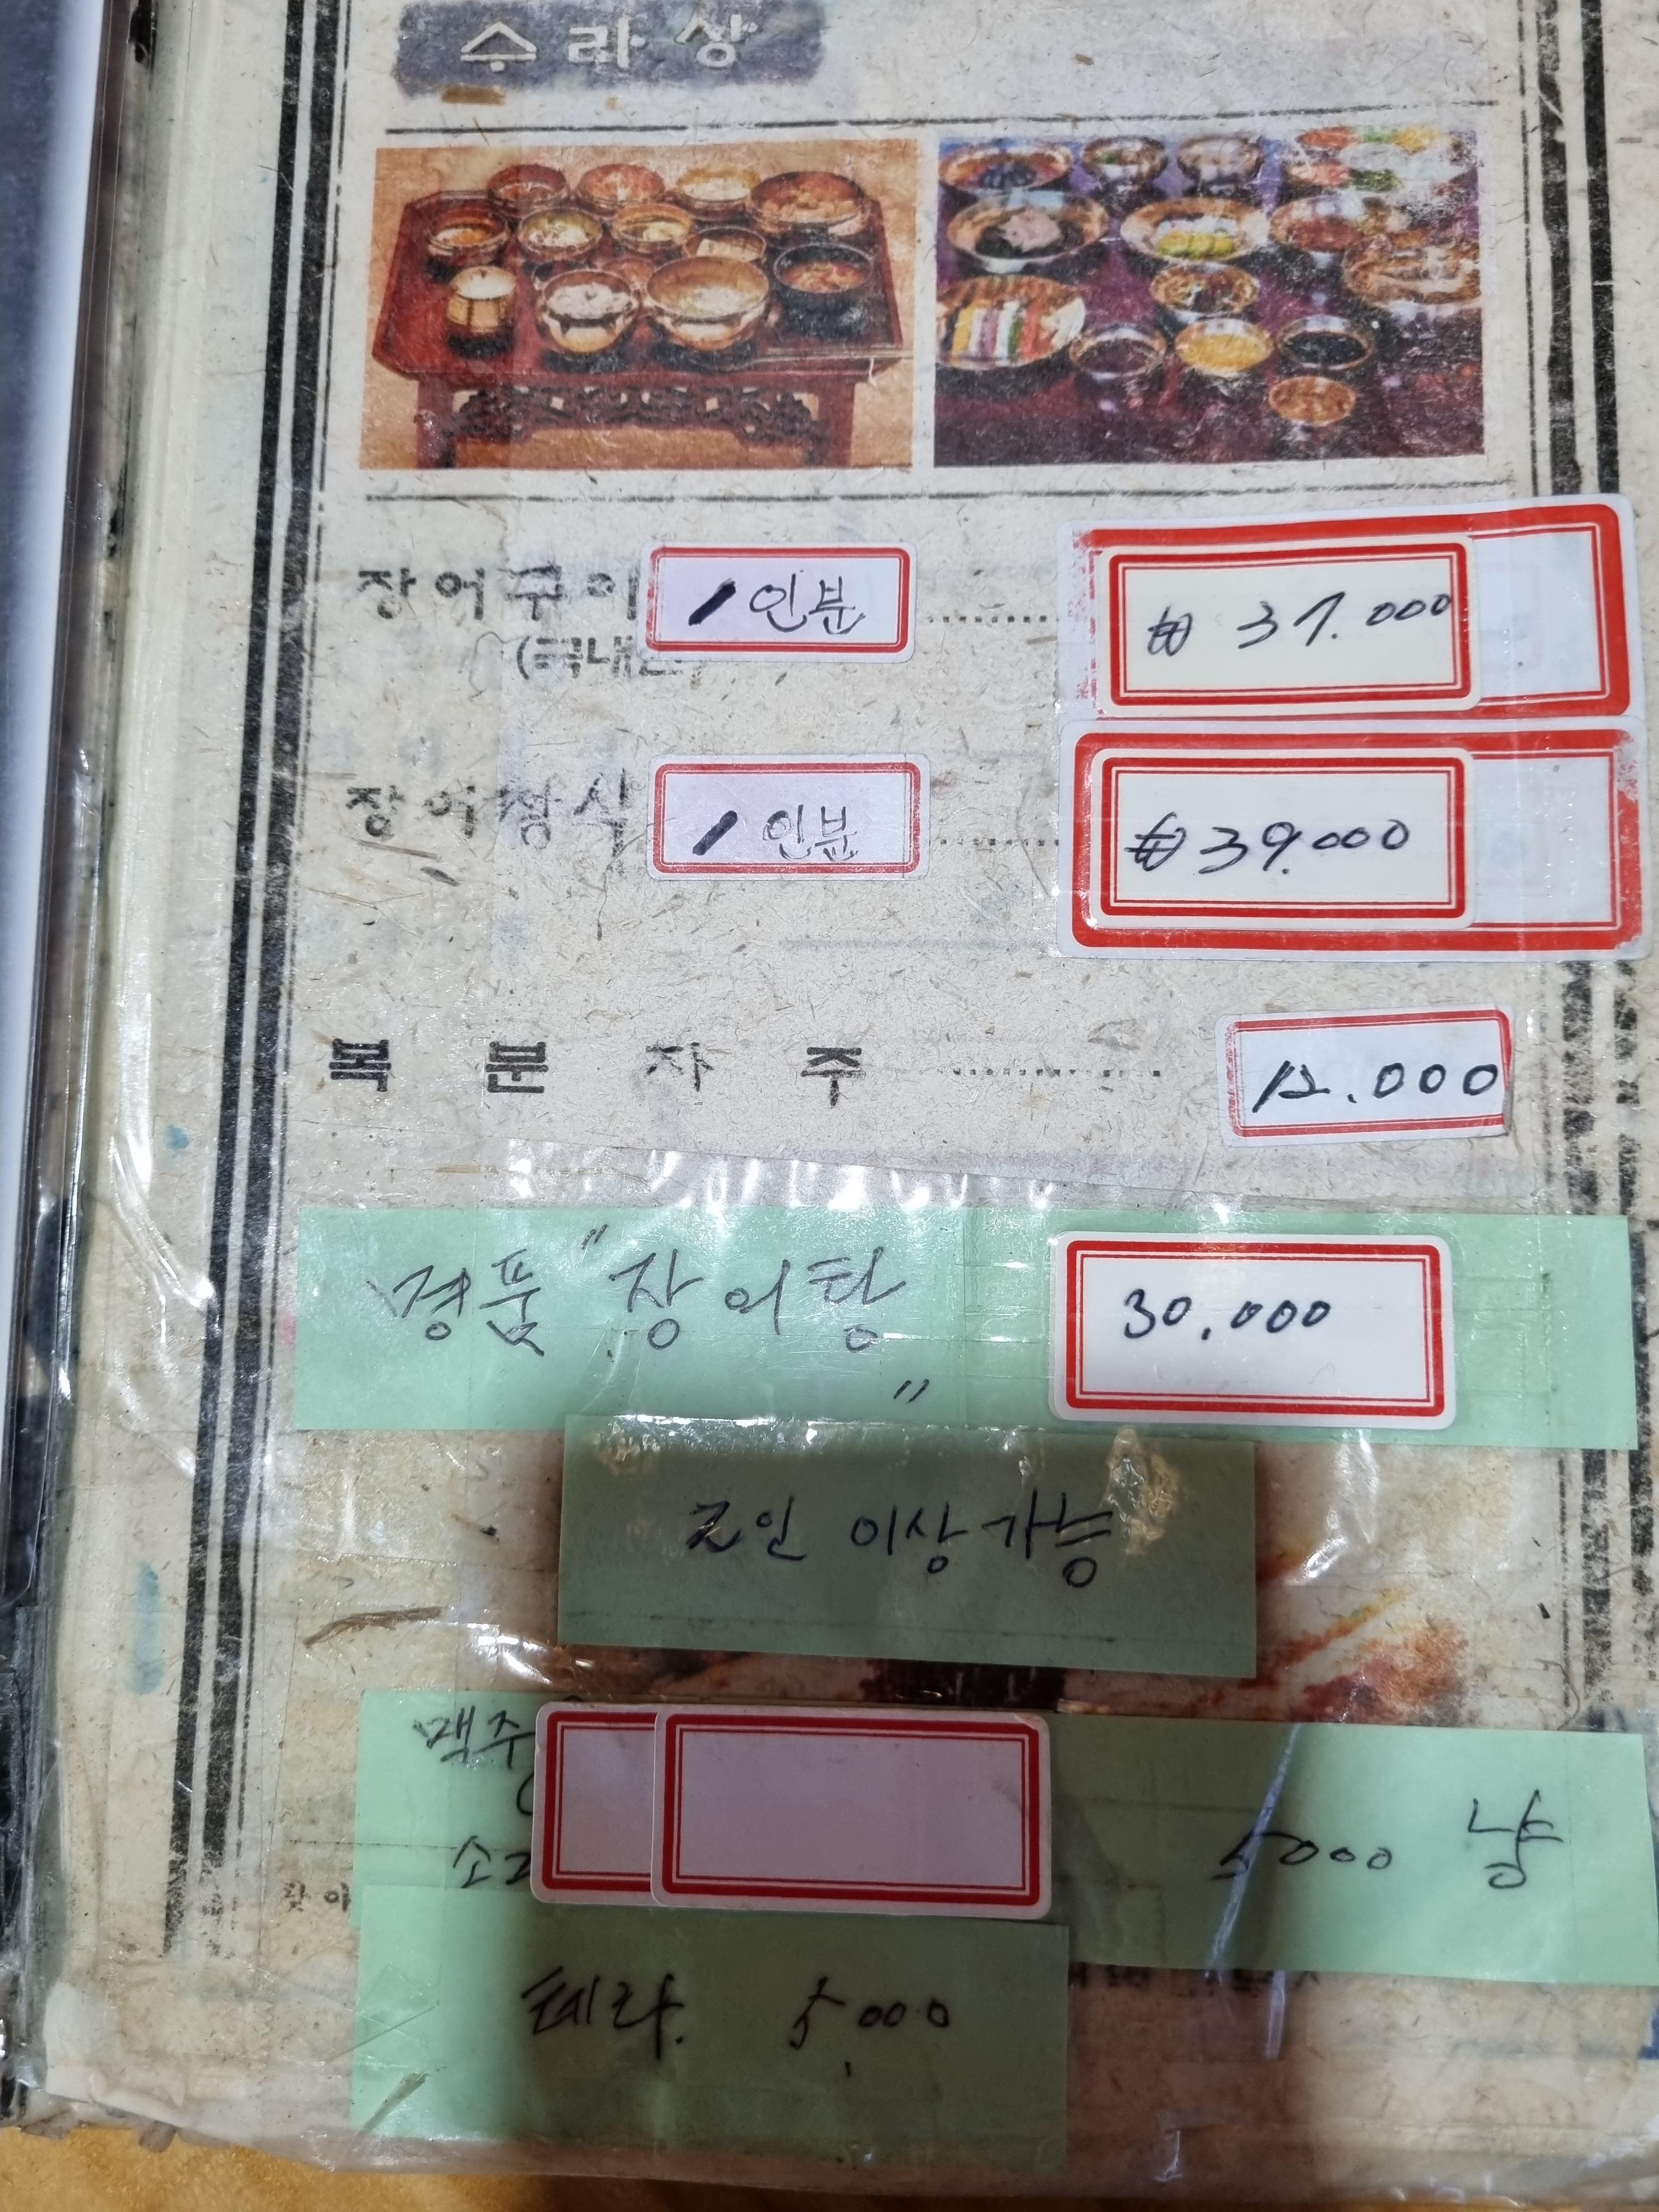 수라상
장어구이 1인분 ₩ 37.000
(국내산)
장어정식 1인분 ₩39.000
복분자주 12.000
명품 "장어탕" 30.000
2인 이상 가능
맥주
5000 냥
테라. 5.000